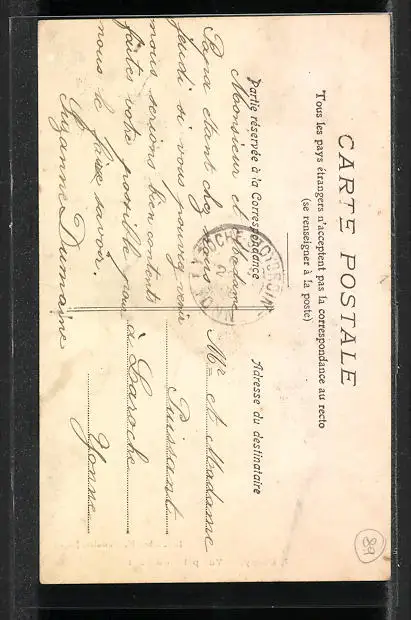 CARTE POSTALE
Tous les pays étrangers n'acceptent pas la correspondance au recto
(se renseigner à la poste)
Partie réservée à la Correspondance
Adresse du destinataire
Monsieur et Madame
Papa étant chez nous
jeudi si vous pouvez venir
nous serions bien contents
faites votre possible
nous le faire savoir.
Suzanne Dumaine
Mr et Madame
Puissant
à Laroche
Yonne
89